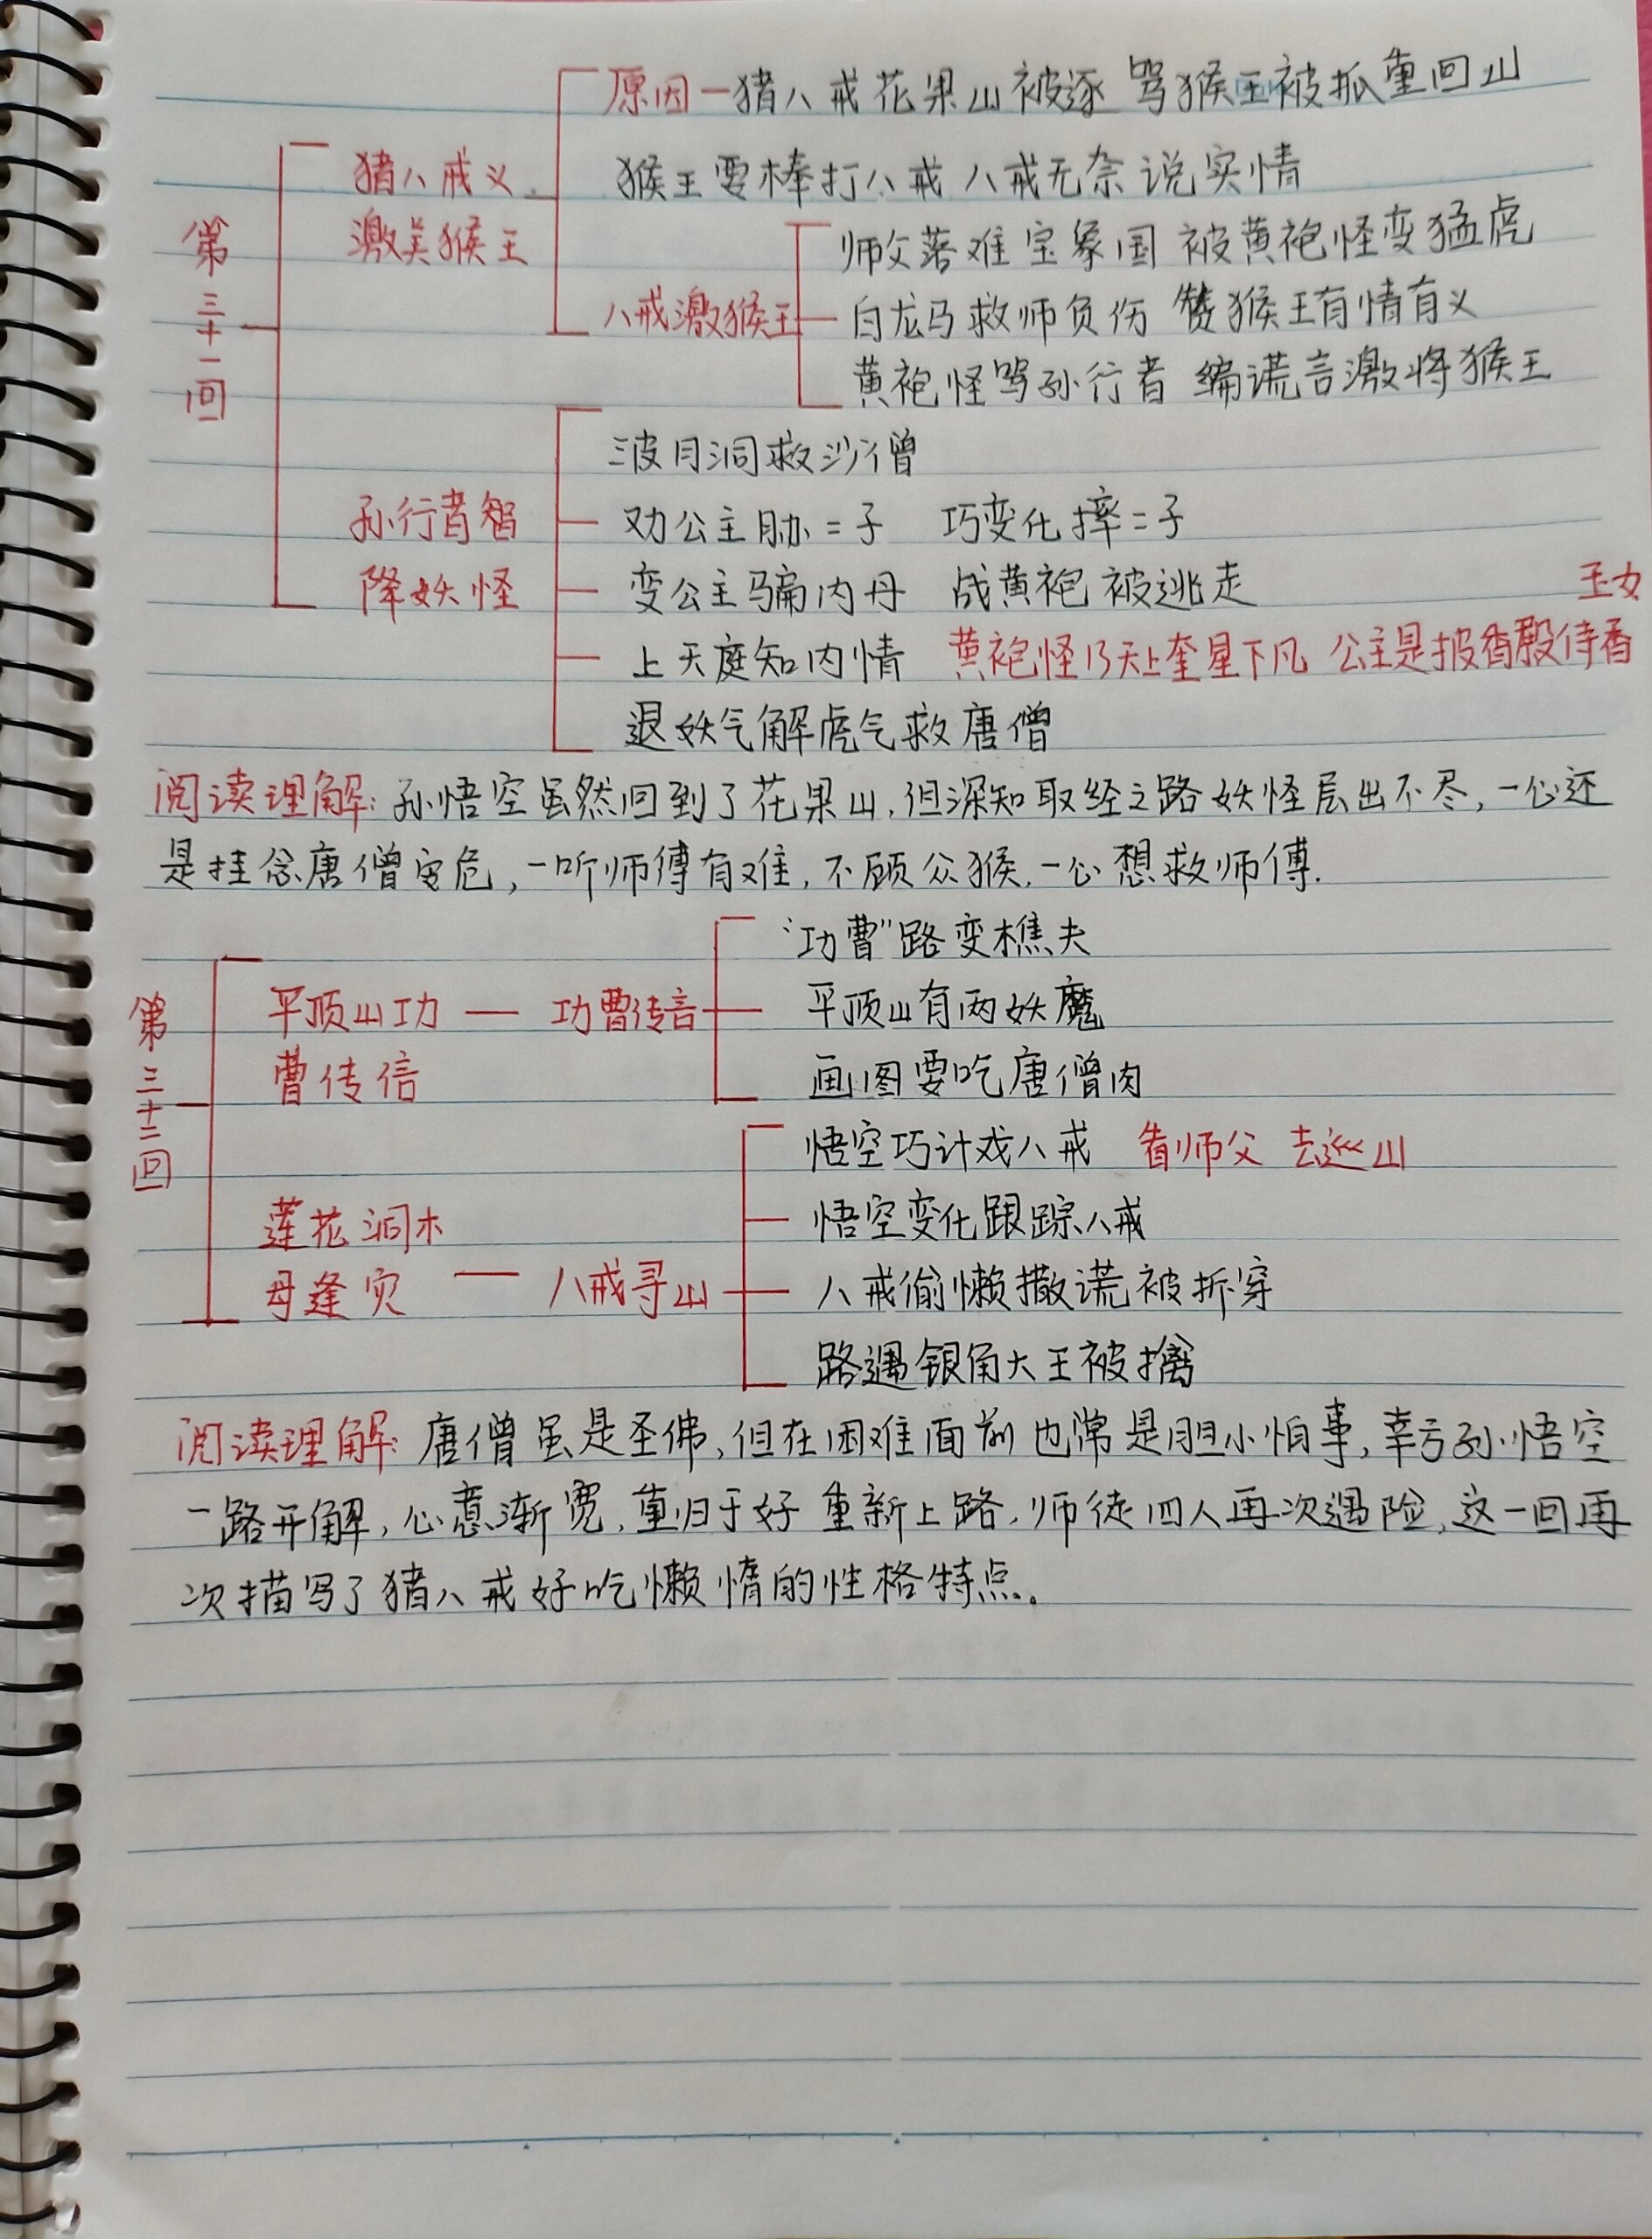 原因—猪八戒花果山被逐 骂猴王被抓重回山
猪八戒义
激美猴王
猴王要棒打八戒 八戒无奈说实情
第三十一回
八戒激猴王
师父落难宝象国 被黄袍怪变猛虎
白龙马救师负伤 赞猴王有情有义
黄袍怪骂孙行者 编谎言激将猴王
孙行者智
降妖怪
波月洞救沙僧
劝公主胁二子 巧变化摔二子
变公主骗内丹 战黄袍被逃走
上天庭知内情 黄袍怪乃天上奎星下凡 公主是披香殿侍香
玉女
退妖气解虎气救唐僧
阅读理解:孙悟空虽然回到了花果山,但深知取经之路妖怪层出不尽,一心还
是挂念唐僧安危,一听师傅有难,不顾众猴,一心想救师傅.
第三十二回
平顶山功
曹传信
— 功曹传言
“功曹”路变樵夫
平顶山有两妖魔
画图要吃唐僧肉
莲花洞木
母逢灾
— 八戒寻山
悟空巧计戏八戒 看师父 去巡山
悟空变化跟踪八戒
八戒偷懒撒谎被拆穿
路遇银角大王被擒
阅读理解:唐僧虽是圣佛,但在困难面前也常是胆小怕事,幸亏孙悟空
一路开解,心意渐宽,重归于好 重新上路,师徒四人再次遇险,这一回再
次描写了猪八戒好吃懒惰的性格特点。